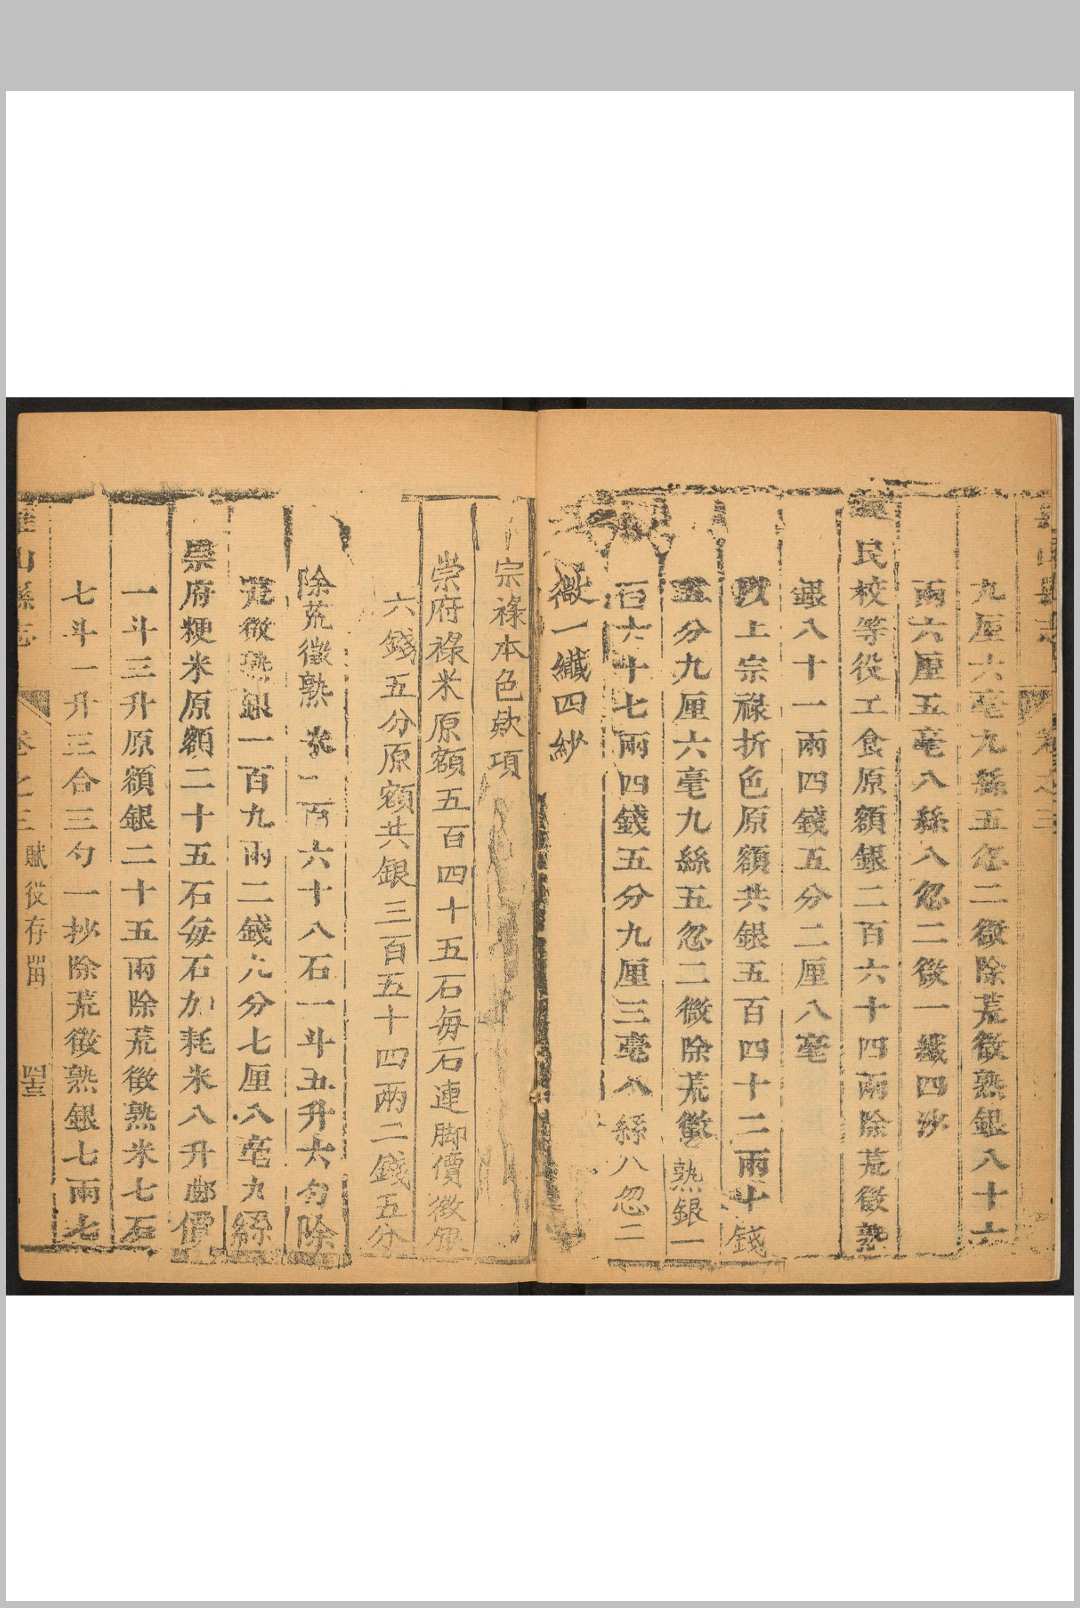 九厘六毫九絲五忽二微除荒徵熟銀八十六
兩六厘五毫八絲八忽二微一纖四沙
民校等役工食原額銀二百六十四兩除荒徵熟
銀八十一兩四錢五分二厘八毫
以上宗祿折色原額共銀五百四十二兩七錢
五分九厘六毫九絲五忽二微除荒徵熟銀一
百六十七兩四錢五分九厘三毫八絲八忽二
微一纖四紗
宗祿本色欵項
崇府祿米原額五百四十五石每石連脚價徵銀
六錢五分原額共銀三百五十四兩二錢五分
除荒徵熟米一百六十八石一斗五升六勺除
荒徵熟銀一百九兩二錢九分七厘八毫九絲
崇府粳米原額二十五石每石加耗米八升腳價
一斗三升原額銀二十五兩除荒徵熟米七石
七斗一升三合三勺一抄除荒徵熟銀七兩七
山縣志 卷之三 賦役存留